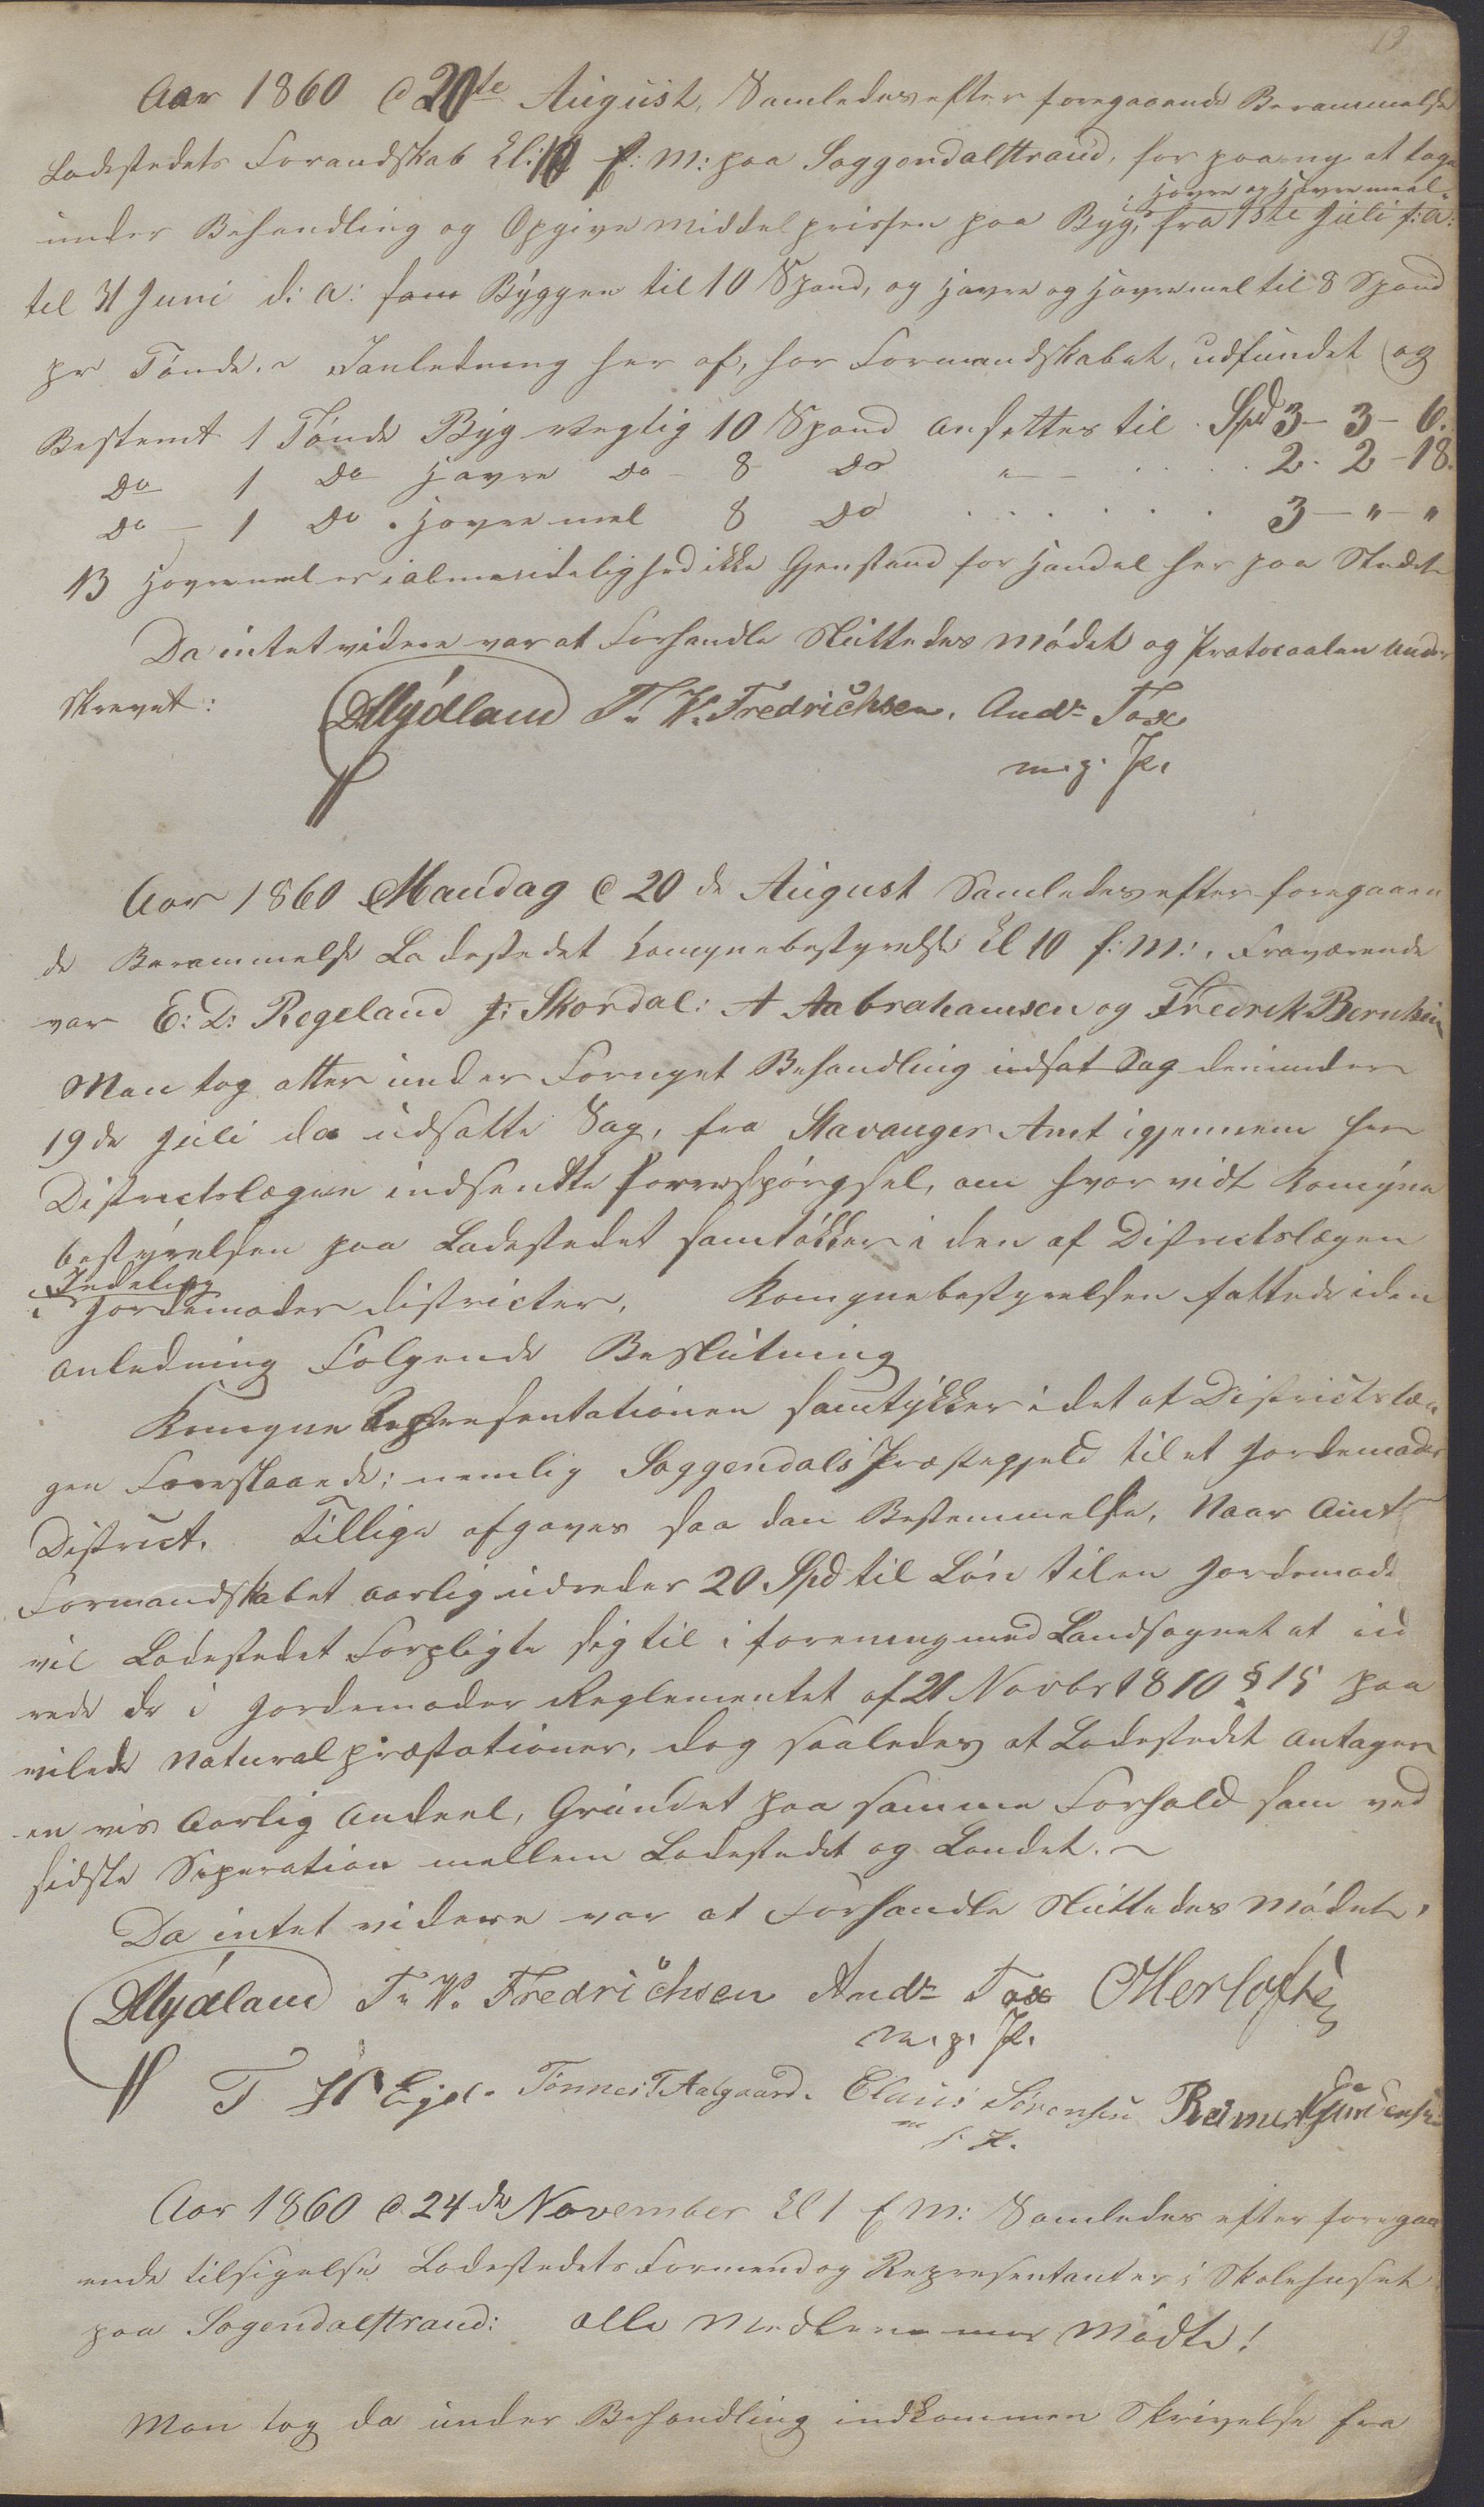 19
Aar 1860 d 20te August, Samledes efter foregaaende Berammelse
Ladestedets Forandskab kl: 10 f: M: paa Soggendalstrand, for paa ny at tage
, Havre og Havremeel
under Behandling og Opgive Middelprissen paa Byg, fra 1ste Juli f: a:
til 31 Juni d: A: som Byggen til 10 Spand, og Havre og Havremel til 8 Spand
pr Tønde. ~ Ianledning her af, har Formandskabet, udfundet og
Bestemt 1 Tønde Byg vegtig 10 Spand ansettes til Spd 3 - 3 - 6.
Do 1 Do Havre Do 8 Do " . . . . 2. 2 - 18.
Do - 1 Do . Havremel 8 Do . . . . . . 3 - " - "
NB Havremel er i almindelighed ikke Gjenstand for Handel her paa Stedet
Da intet videre var at Forhandle Sluttedes Mødet og Protocaalen under
skrevet: DMydland T. W. Fredrichsen. Andr Tox
m. p. P.
Aar 1860 Mandag d 20 de August Samledes efter foregaaen
de Berammelse Ladestedet Komynebestyrelse kl 10 f: M: . Fraværende
var E: D: Regeland J: Skordal: A Aabrahamsen og Fredrik Berntsen
Man tog atter under Fornyet Behandling indsat Sag denunder
19de Juli da udsatte Sag, fra Stavanger Amt igjennem Her
Districtslægen indsendte forrespørgsel, om hvor vidt Komyne
bestyrelsen paa Ladestedet samtøkker i den af Districtslægen
Indeling
i Jordemoder districter. Komynebestyrelsen fattede iden
anledning Følgende Beslutning
Komyne Representationen samtykker i det af Districtslæ
gen Foreslaaede; nemlig Soggendals Præstegjeld til et Jordemoder
District. Tillige afgaves saa dan Bestemmelse, Naar Amts
Formandskabet aarlig udreder 20 Spd til Løn til en Jordemode
vil Ladestedet Forpligte sig til i forening med Landsognet at ud
rede de i Jordemoder Reglementet af 21 Novbr 1810 § 15 paa
vilede Naturalpræstationer, dog saaledes at Ladestedet Antager
en vis Aarlig Andeel, Grundet paa samme Forhold som ved
sidste Seperation mellem Ladestedet og Landet. ~
Da intet videre var at Forhandle Sluttedes Mødet.
DMydland T. W. Fredrichsen Andr Tox OHerlofsen
m. p. P.
T H Eget. Tønnes T Aalgaard. Claus Sørensen Reimert
m
f. P.
Aar 1860 d. 24de November kl 1 E M: Samledes efter foregaa
ende tilsigelse Ladestedets Formend og Representanter i Skolehuset
paa Sogendalstrand: alle Medlemmer Mødte!
Man tog da under Behandling indkommen Skrivelse fra